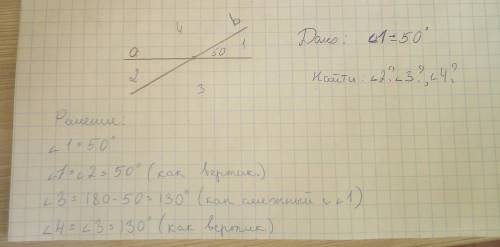 4 b
a 50 1
2
3
Дано: ∠1=50°
Найти ∠2?∠3?,∠4?
Решение:
∠1=50°
∠1=∠2=50° (как вертик.)
∠3=180-50=130° (как смежный с ∠1)
∠4=∠3=130° (как вертик)